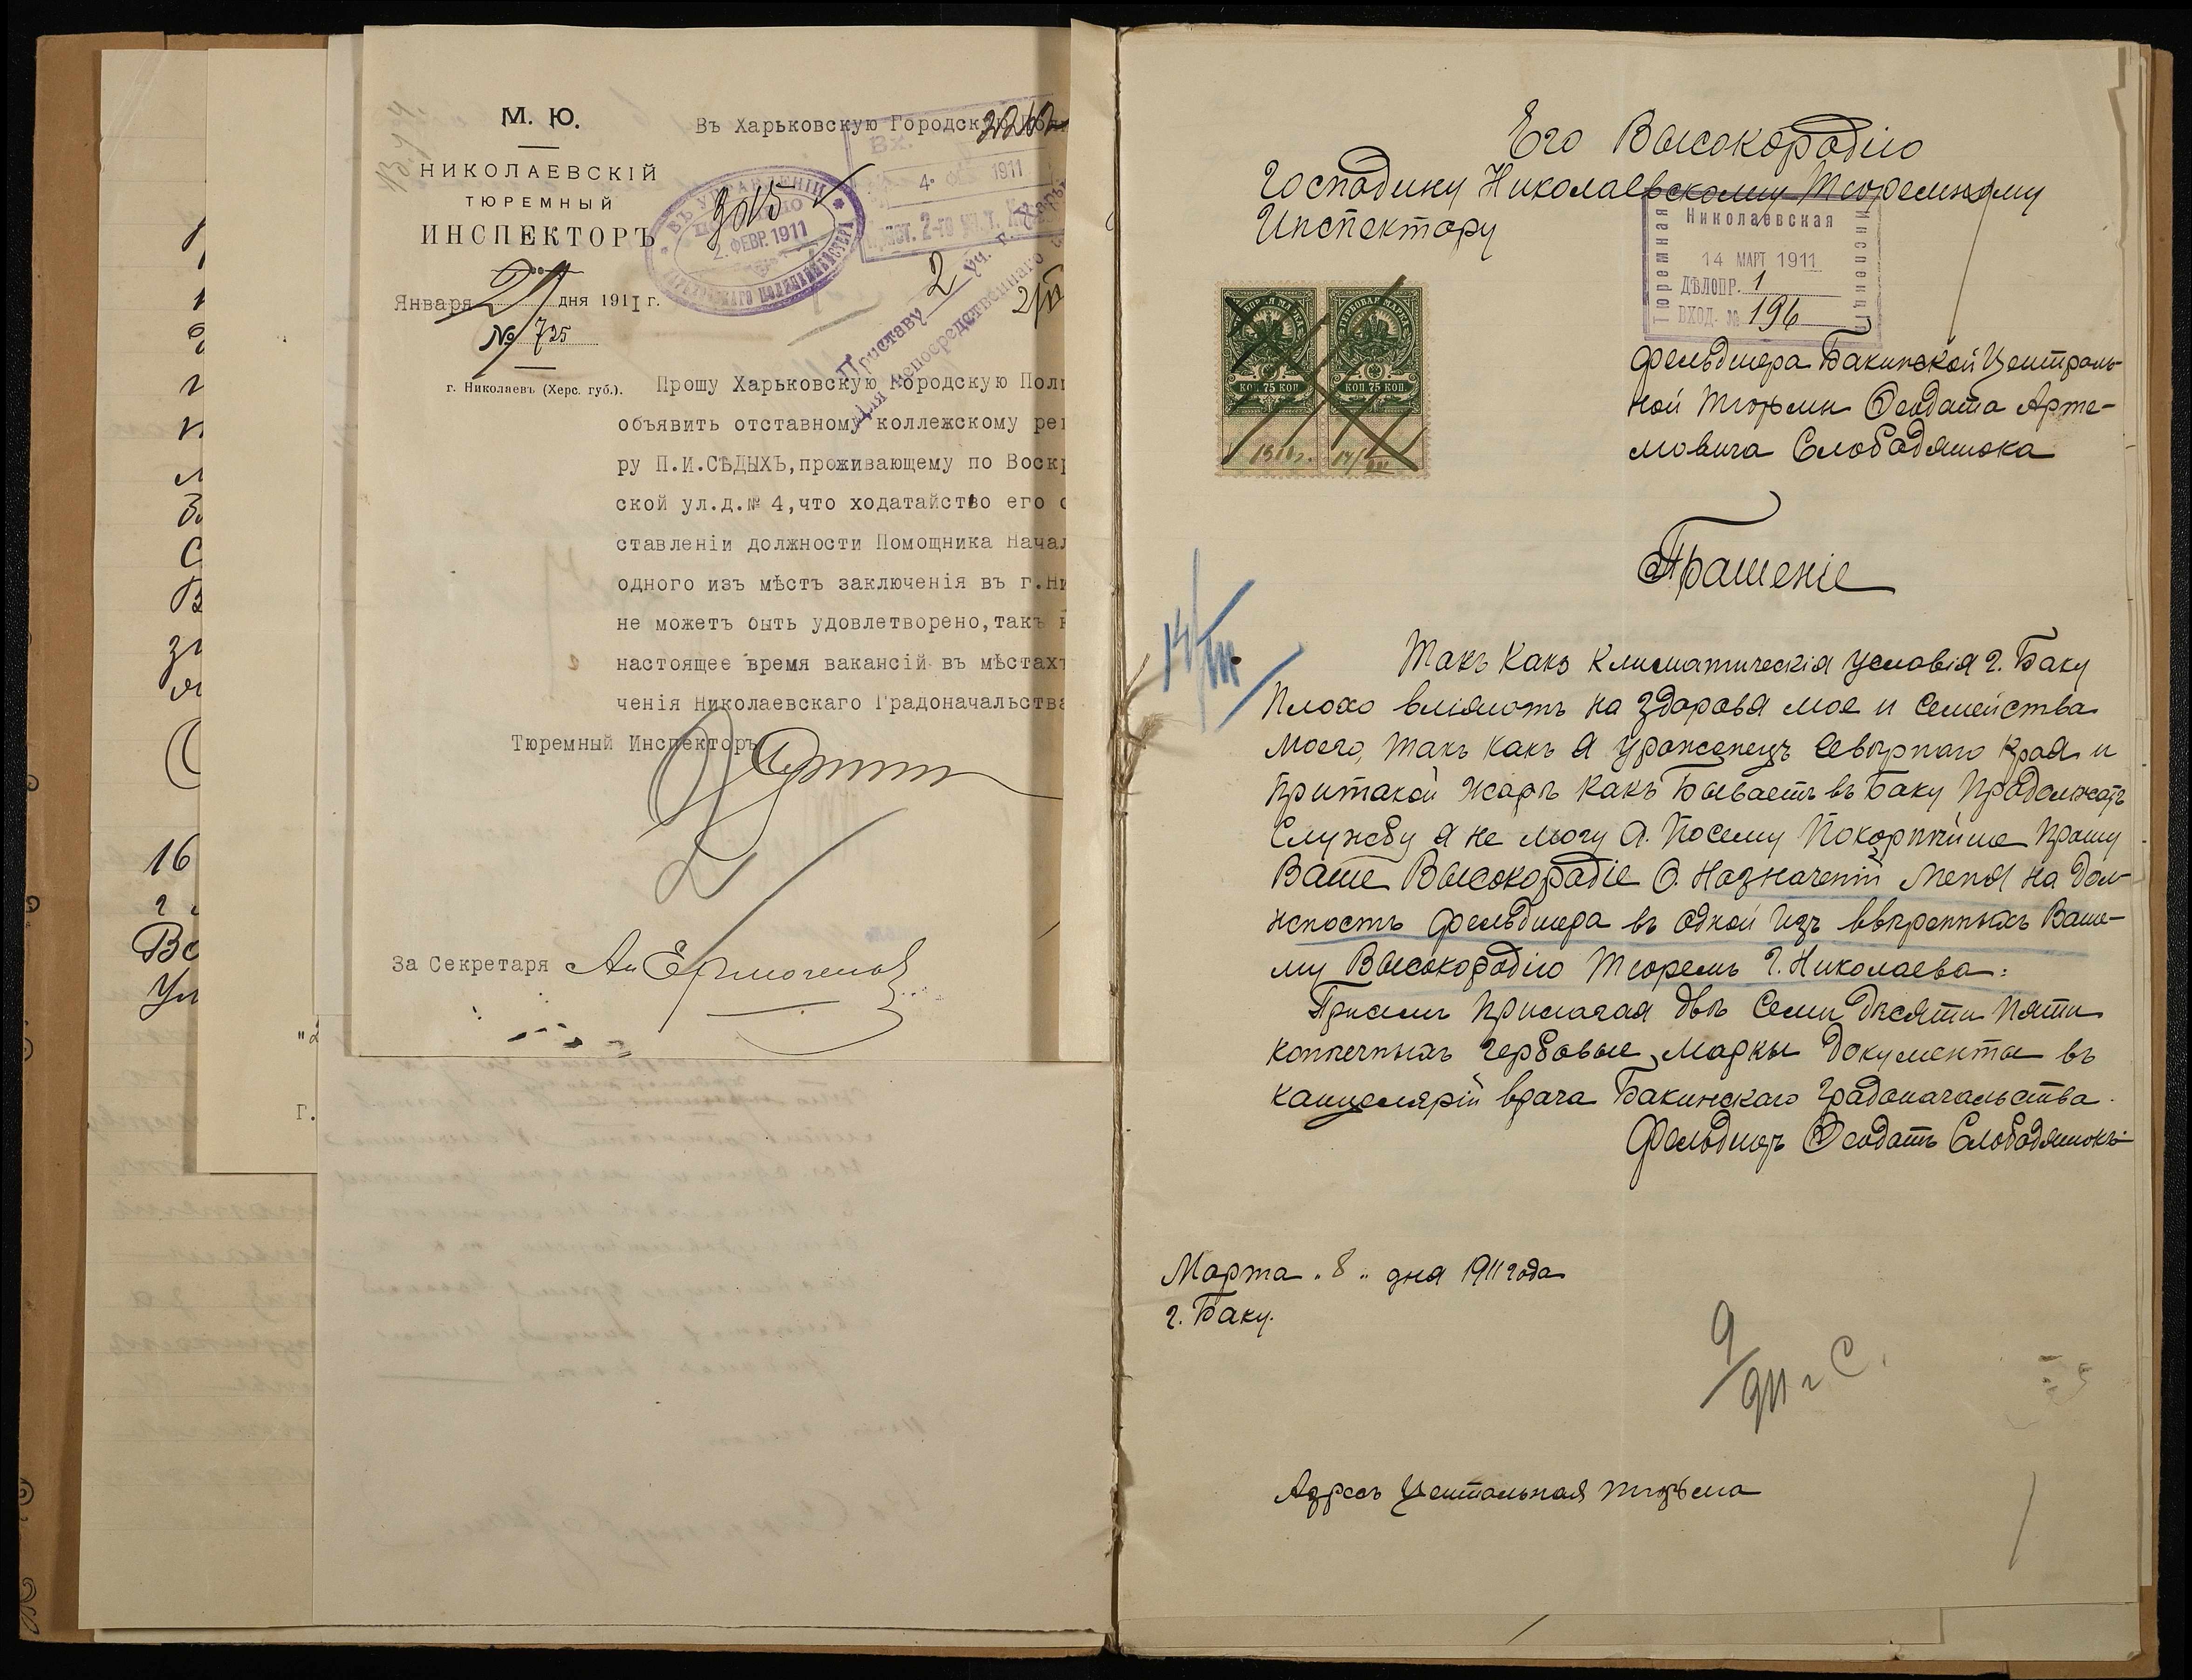 М. Ю.
НИКОЛАЕВСКІЙ
ТЮРЕМНЫЙ
ИНСПЕКТОРЪ
Января 29 дня 1911 г.
№ 725
г. Николаевъ (Херс. губ.).
Въ Харьковскую Городскую
ВЪ УПРАВЛЕНІИ
2. ФЕВР. 1911
ХАРЬКОВСКАГО ПОЛИЦІЙМЕЙСТЕРА
Вх.
4. 1911
Прист. 2-го уч. г. Харьк
Приставу 2 уч. г.
Для непосредственнаго
Прошу Харьковскую Городскую Пол
объявить отставному коллежскому ре
ру П.И.СѢДЫХЪ, проживающему по Воскр
ской ул.д.№ 4, что ходатайство его о
ставленіи должности Помощника Начал
одного изъ мѣстъ заключенія въ г.Ни
не можетъ быть удовлетворено, такъ к
настоящее время вакансій въ мѣстахъ
ченія Николаевскаго Градоначальства
Тюремный Инспекторъ
За Секретаря Ан Ермогенов
16
Его Высокородію
Господину Николаевскому Тюремному
Инспектору
Николаевская
Тюремная
Инспекція
14 МАРТ 1911
ДѢЛОПР. 1
ВХОД. № 196
ГЕРБОВАЯ МАРКА
ГЕРБОВАЯ МАРКА
КОП. 75 КОП.
КОП. 75 КОП.
фельдшера Бакинской Централь-
ной Тюрьмы Ѳеодата Арте-
мовича Слободянюка
Прашеніе
Такъ Какъ Климатическія условія г. Баку
Плохо вліяютъ на здоровя мое и Семейства
моего, такъ какъ я уроженецъ Севѣрнаго Края и
притакой жарѣ какъ Бываетъ въ Баку Продолжать
Службу я не могу А. Посему Покорнѣйше Прошу
Ваше Высокородіе О. Назначеніи Меня на дол-
жность фельдшера въ одной изъ ввѣренныхъ Ваше-
му Высокородію Тюремъ г. Николаева:
Присемъ Прилагая двѣ Семи Дѣсяти Пяти
копѣечныхъ гербовые Марки документы въ
канцелярій врача Бакинскаго градоначальства.
Фельдшеръ Ѳеодатъ Слободянюкъ
Марта "8" дня 1911 года
г. Баку.
Адресъ Центальная тюрьма